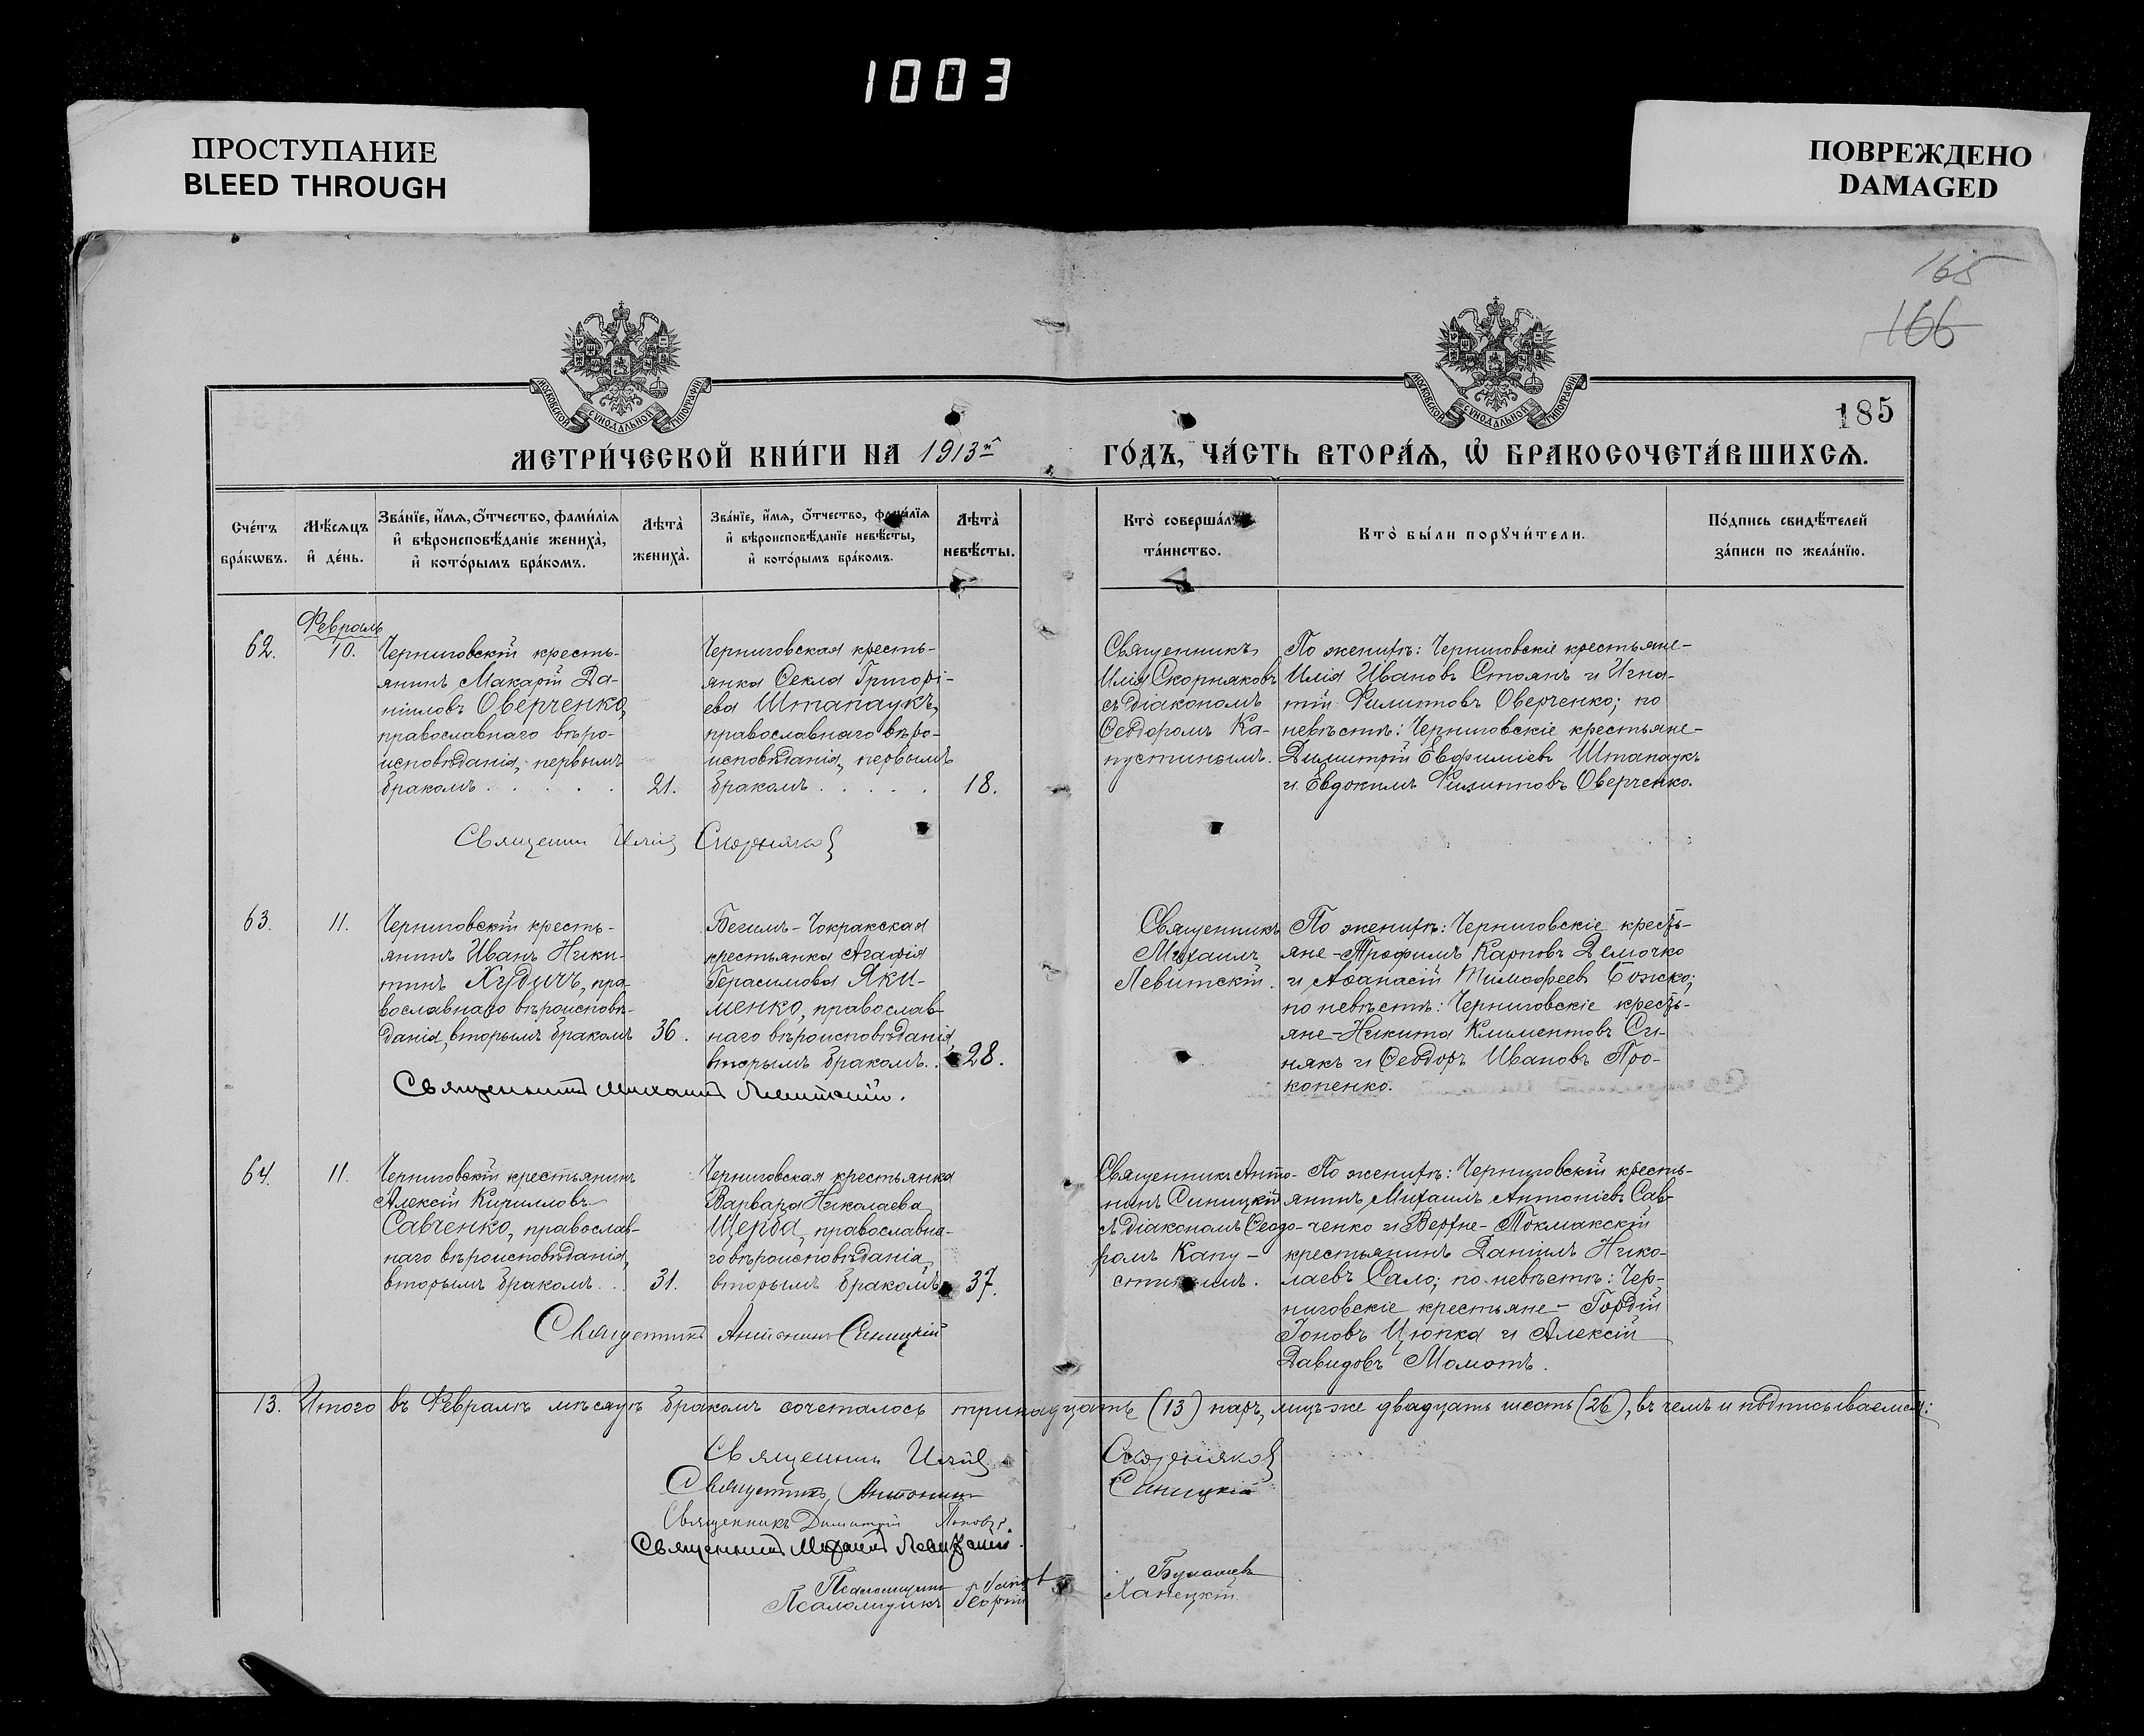 1003
ПРОСТУПАНИЕ
BLEED THROUGH
ПОВРЕЖДЕНО
DAMAGED
165
166
МОСКОВСКОЙ СѴНОДАЛЬНОЙ ТИПОГРАФІИ
МОСКОВСКОЙ СѴНОДАЛЬНОЙ ТИПОГРАФІИ
185
МЕТРИ́ЧЕСКОЙ КНИ́ГИ НА 1913й ГО́ДЪ, ЧА́СТЬ ВТОРА́Ѧ, Ѽ БРАКОСОЧЕТА́ВШИХСѦ.
Сче́тъ бра́кѡвъ.
Мѣ́сѧцъ и҆ де́нь.
Зва́нїе, и҆́мѧ, ѻ҆́тчество, фами́лїѧ
и҆ вѣроисповѣ́данїе жениха̀,
и҆ кото́рымъ бра́комъ.
Лѣ́та̀ жениха̀.
Зва́нїе, и҆́мѧ, ѻ҆́тчество, фами́лїѧ
и҆ вѣроисповѣ́данїе невѣ́сты,
и҆ кото́рымъ бра́комъ.
Лѣ́та̀ невѣ́сты.
Кто̀ соверша́лъ
та́инство.
Кто̀ бы́ли порꙋчи́тели.
По́дпись свидѣ́телей
за́писи по жела́нїю.
Февраль
62.
10.
Черниговскій кресть-
янинъ Макарій Да-
ніиловъ Оверченко,
православнаго вѣро-
исповѣданія, первымъ
бракомъ . . . . .
21.
Черниговская кресть-
янка Ѳекла Григорі-
ева Штапаукъ,
православнаго вѣро-
исповѣданія, первымъ
бракомъ . . . . .
18.
Священникъ
Илія Скорняковъ
съ діакономъ
Ѳеодоромъ Ка-
пустинымъ.
По женихѣ: Черниговскіе крестьяне-
Илія Ивановъ Стоянъ и Игна-
тій Филиповъ Оверченко; по
невѣстѣ: Черниговскіе крестьяне-
Димитрій Евфиміевъ Штапаукъ
и Евдокимъ Филиповъ Оверченко.
Священн Илія Скорняковъ
63.
11.
Черниговскій кресть-
янинъ Иванъ Ники-
тинъ Худичъ, пра-
вославнаго вѣроисповѣ-
данія, вторымъ бракомъ
36.
Бегимъ-Чокракская
крестьянка Агафія
Герасимова Яки-
менко, православ-
наго вѣроисповѣданія,
вторымъ бракомъ. .
28.
Священникъ
Михаилъ
Левитскій.
По женихѣ: Черниговскіе кресть-
яне-Трофимъ Карповъ Демочко
и Аѳанасій Тимофеевъ Божко;
по невѣстѣ: Черниговскіе кресть-
яне-Никита Климентовъ Си-
някъ и Ѳеодоръ Ивановъ Про-
копенко.
Священникъ Михаилъ Левитскій.
64.
11.
Черниговскій крестьянинъ
Алексій Кирилловъ
Савченко, православ-
наго вѣроисповѣданія,
вторымъ бракомъ. . .
31.
Черниговская крестьянка
Варвара Николаева
Щерба, православна-
го вѣроисповѣданія,
вторымъ бракомъ
37.
Священникъ Анто-
нинъ Синицкій
съ діакономъ Ѳеодо-
ромъ Капу-
стинымъ.
По женихѣ: Черниговскій кресть-
янинъ Михаилъ Антоніевъ Сав-
ченко и Верхне-Токмакскій
крестьянинъ Даніилъ Нико-
лаевъ Сало; по невѣстѣ: Чер-
ниговскіе крестьяне-Гордій
Іоновъ Цюпка и Алексій
Давидовъ Момотъ.
Священникъ Антонинъ Синицкій
13. Итого въ Февралѣ мѣсяцѣ бракомъ сочеталось тринадцать (13) паръ, лицъ-же двадцать шесть (26), въ чемъ и подписываемся:
Священн Илія Скорняковъ
Священникъ Антонинъ Синицкій
Священникъ Димитрій Поповъ.
Священникъ Михаилъ Левитскій.
Псаломщикъ
Псаломщикъ Георгій Ханецкій